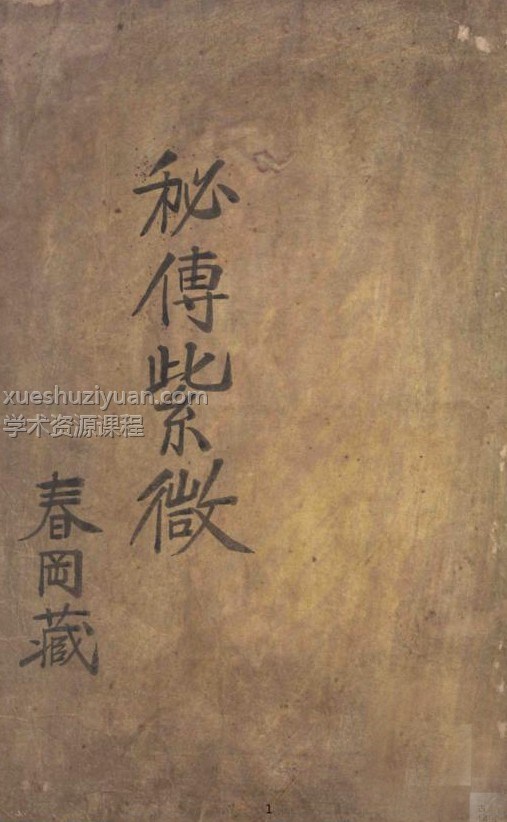 秘傳紫微
春岡藏
xueshuziyuan.com
学术资源课程
1